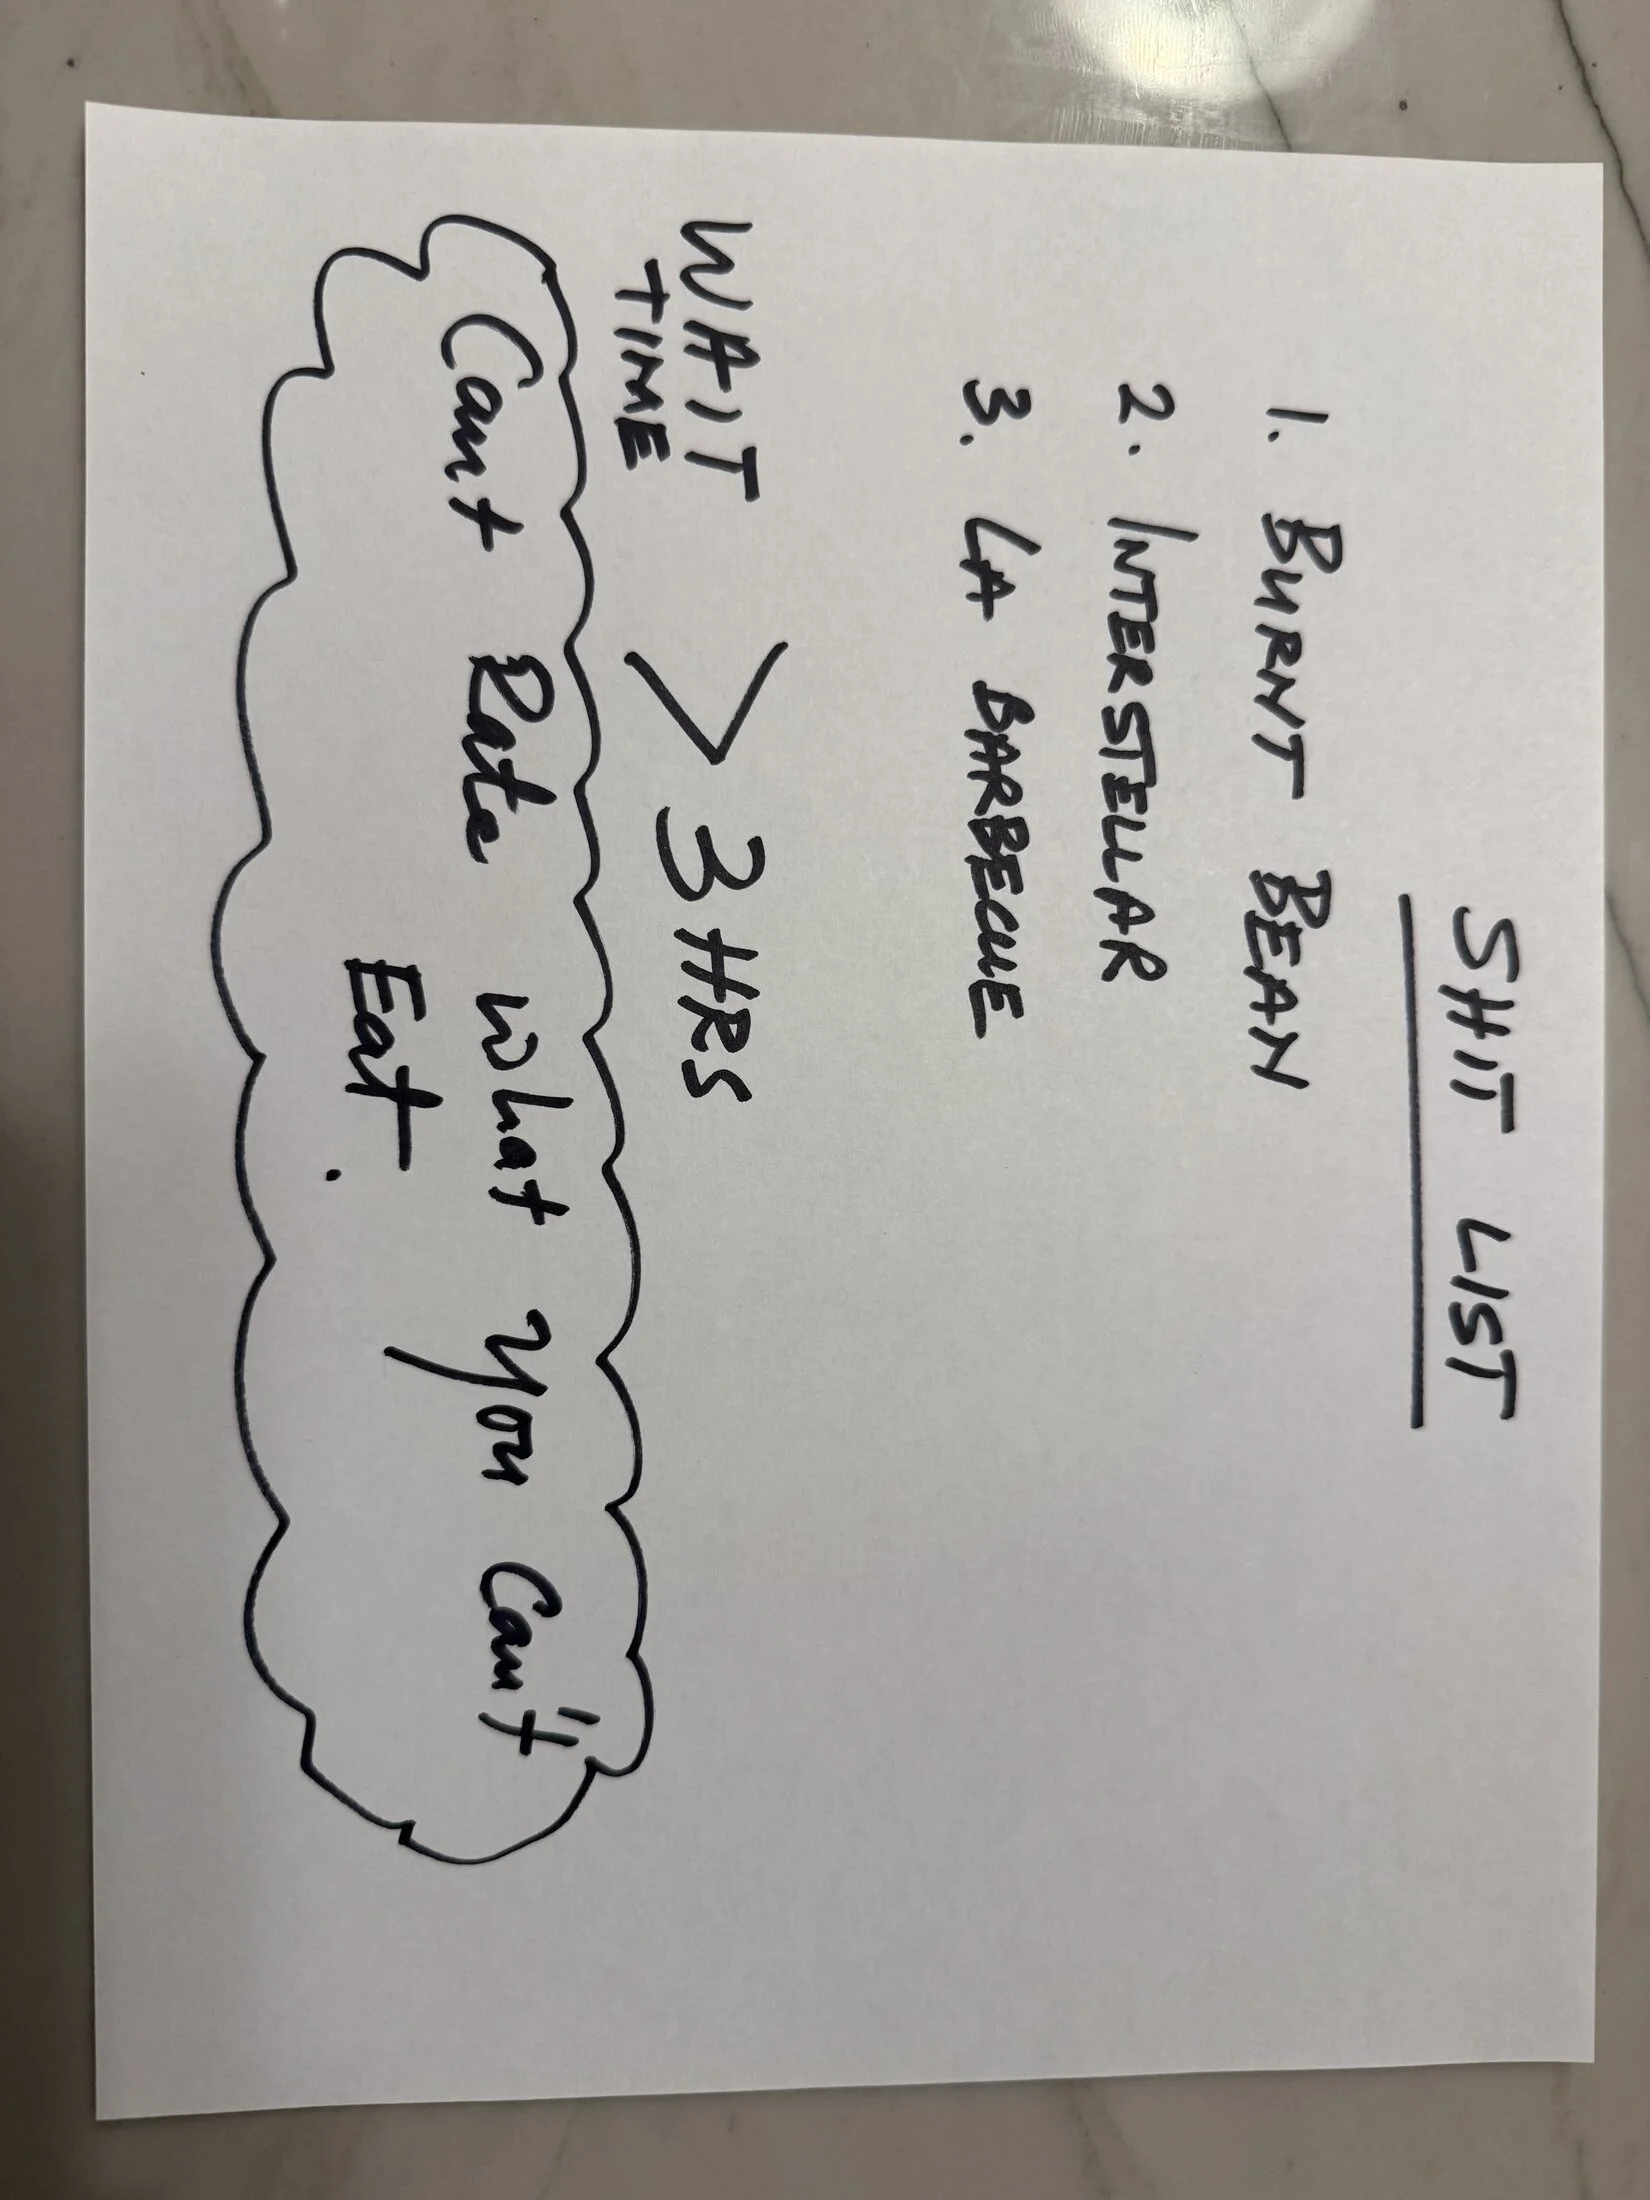 SHIT LIST
1. BURNT BEAN
2. INTERSTELLAR
3. LA BARBECUE
WAIT TIME > 3 HRS
Cant Rate What you Can't
Eat.